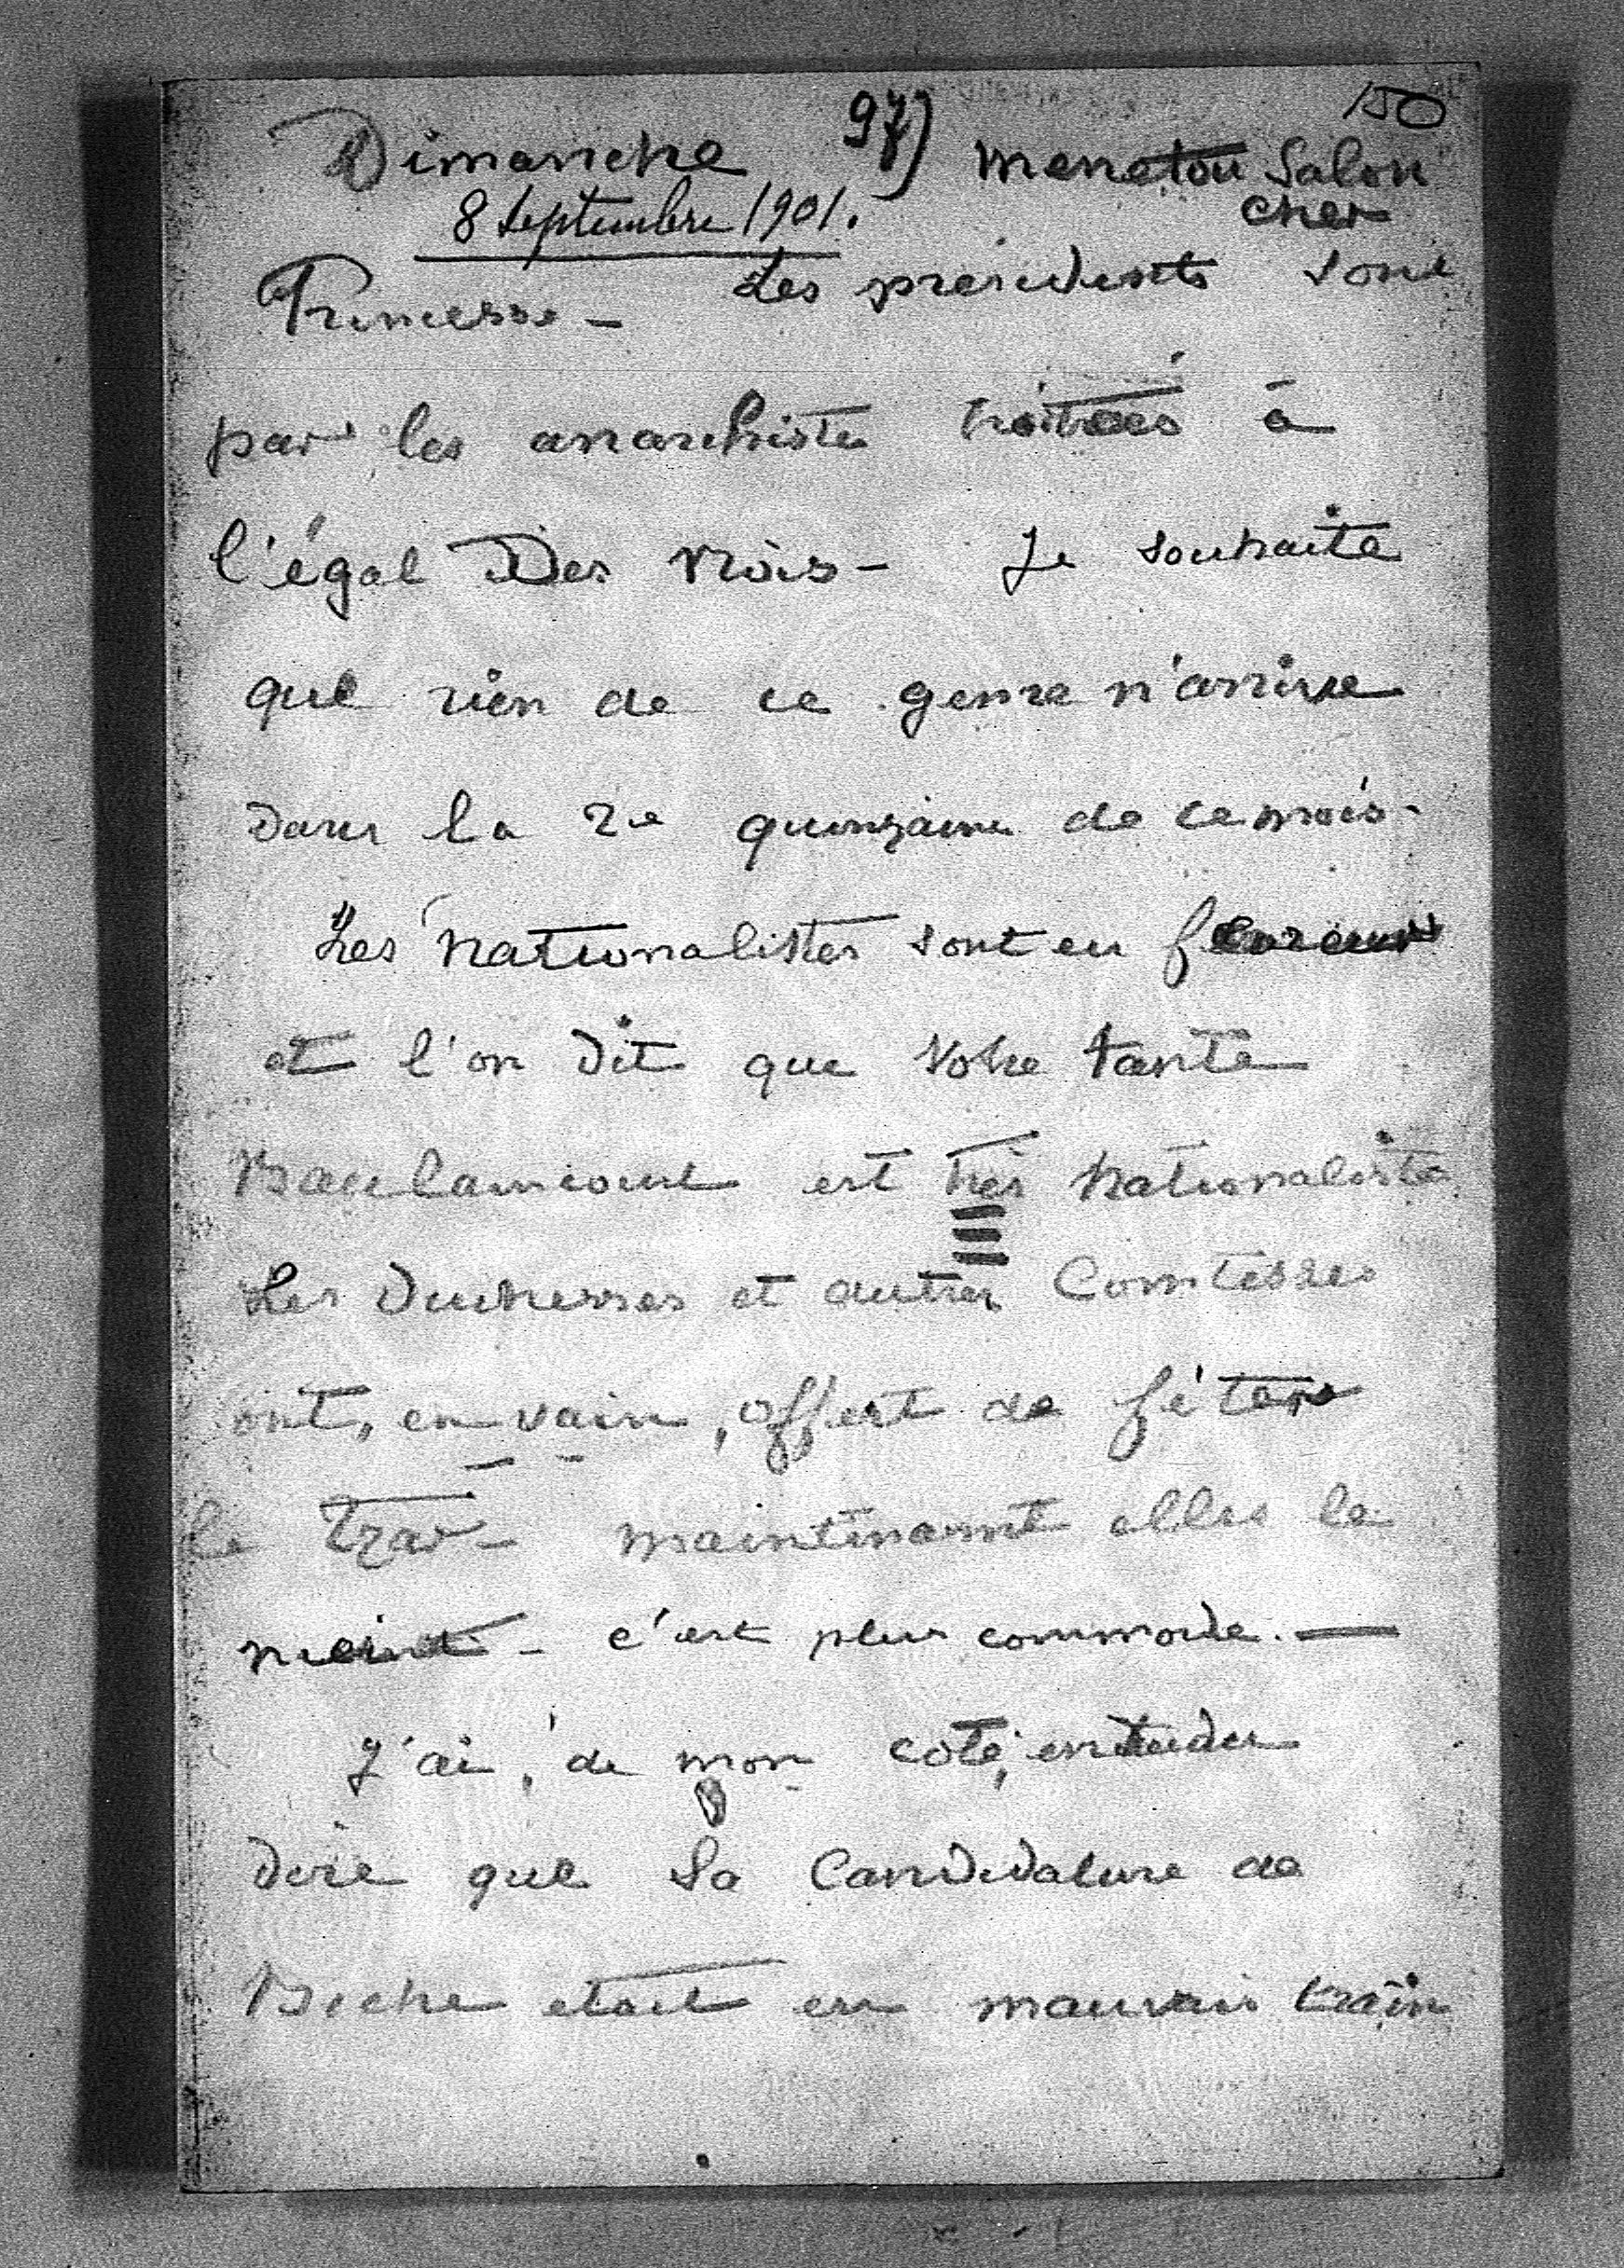 150
Dimanche 97) Menetou Salon
8 Septembre 1901. Cher
Princesse - Les présidents sont
par les anarchistes traités à
l'égal Des Rois - Je souhaite
que rien de ce genre n'arrive
dans la 2e quinzaine de ce mois -
Les Nationalistes sont en fureur
et l'on dit que votre tante
Beaulaincourt est très Nationaliste
Les Duchesses et autres Comtesses
ont, en vain, offert de fêter
le Tzar - maintenant elles le
nient - c'est plus commode. -
J'ai, de mon coté, entendu
dire que la Candidature de
Biche etait en mauvais train